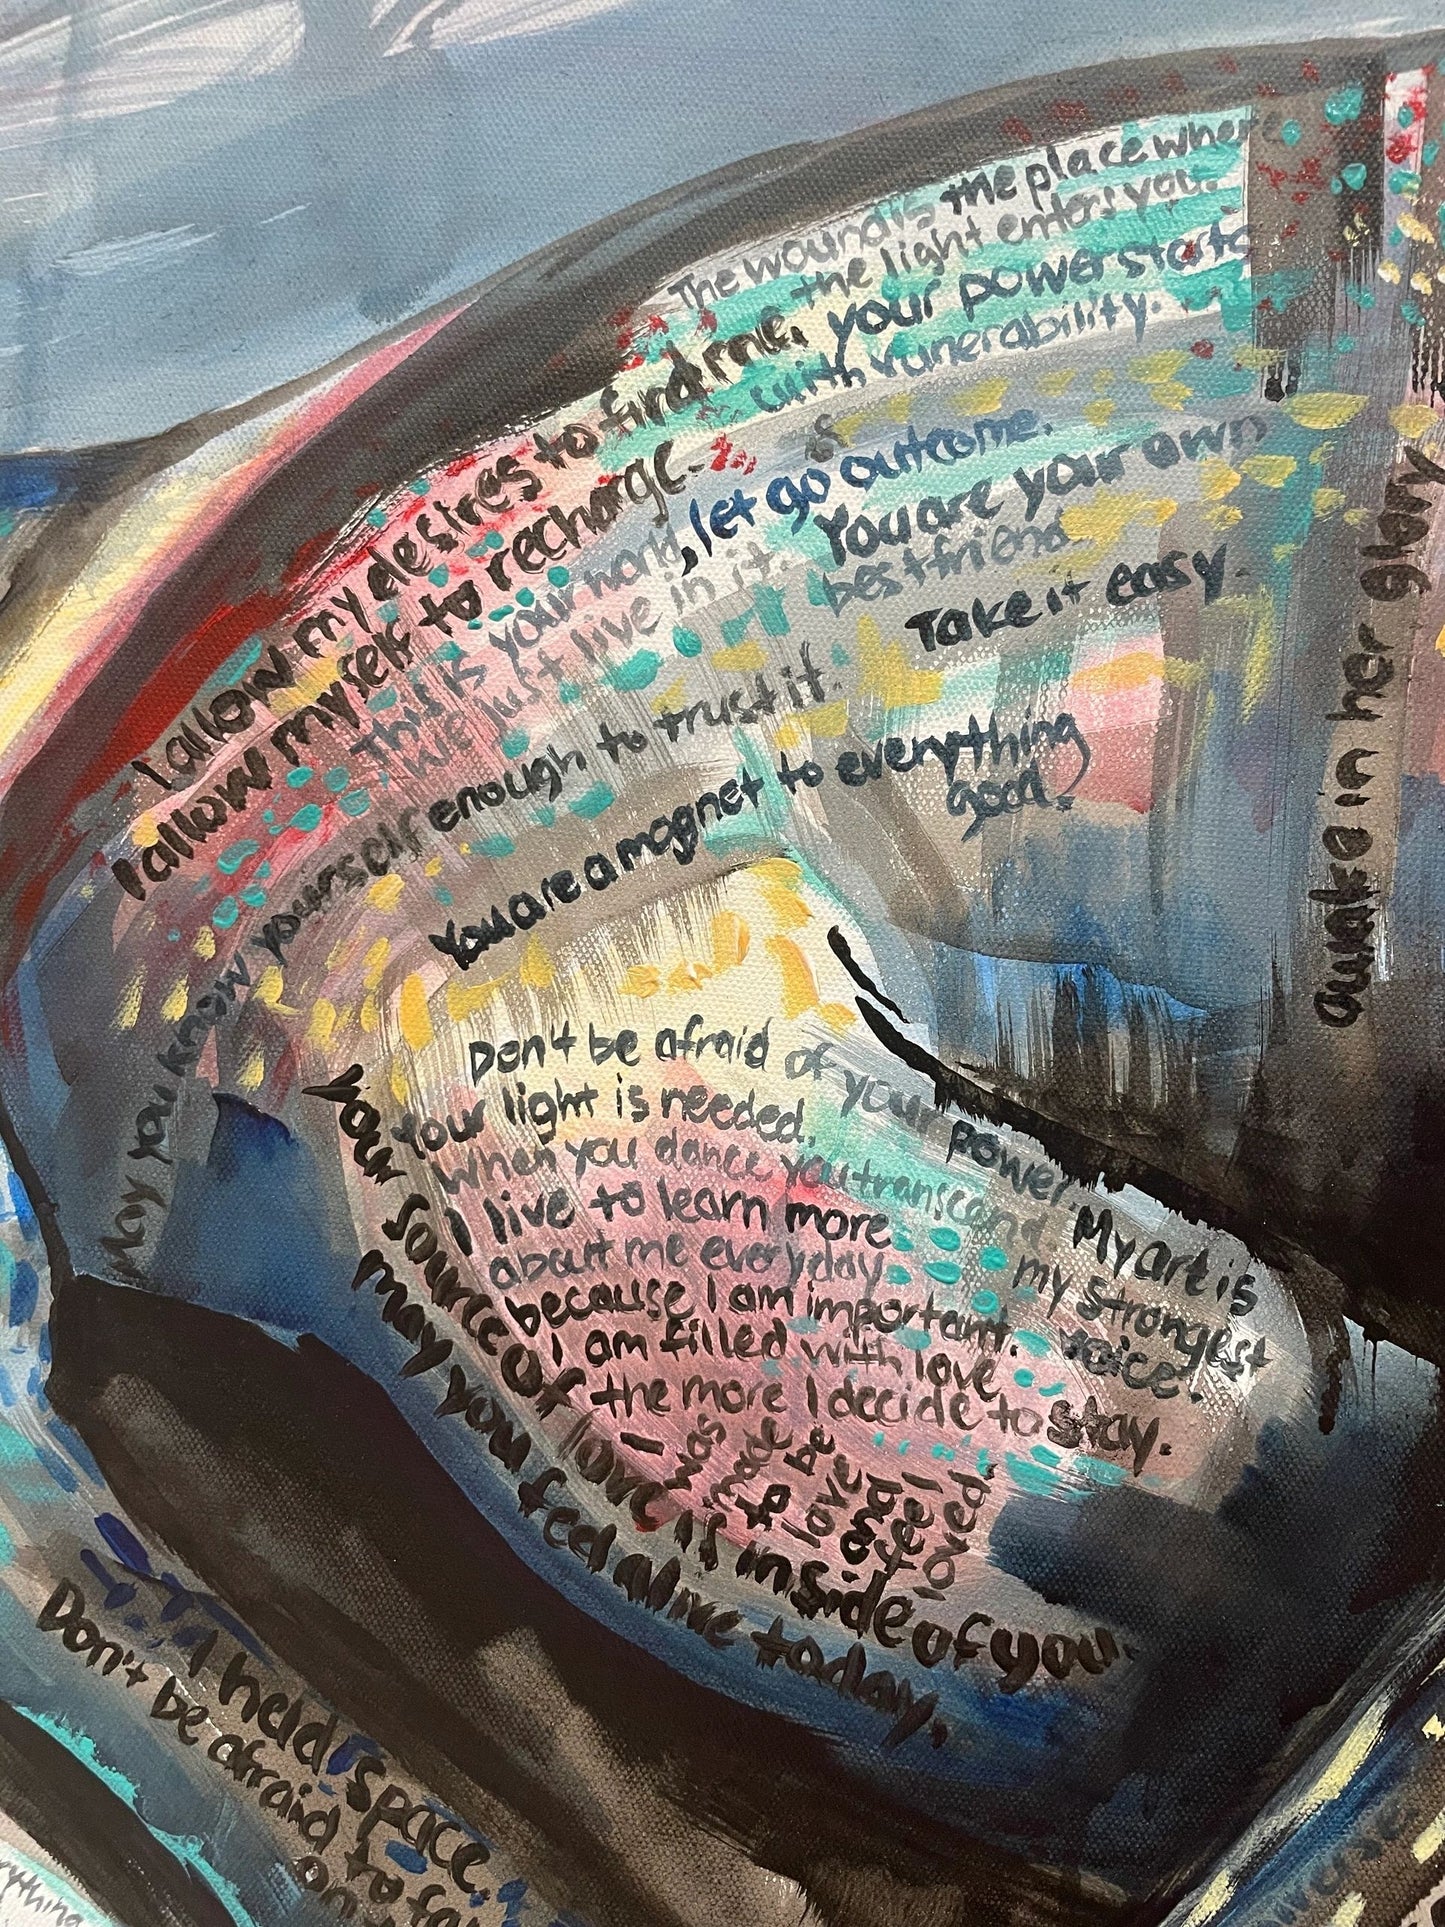 The wound is the place where
the light enters you.
your power starts
with vunerability.
I allow my desires to find me.
I allow myself to recharge.
let go outcome.
This is your world,
we just live in it.
You are your own
best friend
Take it easy.
May you know yourself enough to trust it.
You are a magnet to everything
good.
awake in her glory
Don't be afraid of your power.
Your light is needed.
When you dance you transcend
I live to learn more
about me everyday
because I am important.
I am filled with love
the more I decide to stay.
My art is
my strongest
voice.
I was made to be
to love and feel
loved.
your source of love is inside of you.
may you feel alive today.
I held space.
Don't be afraid to
on